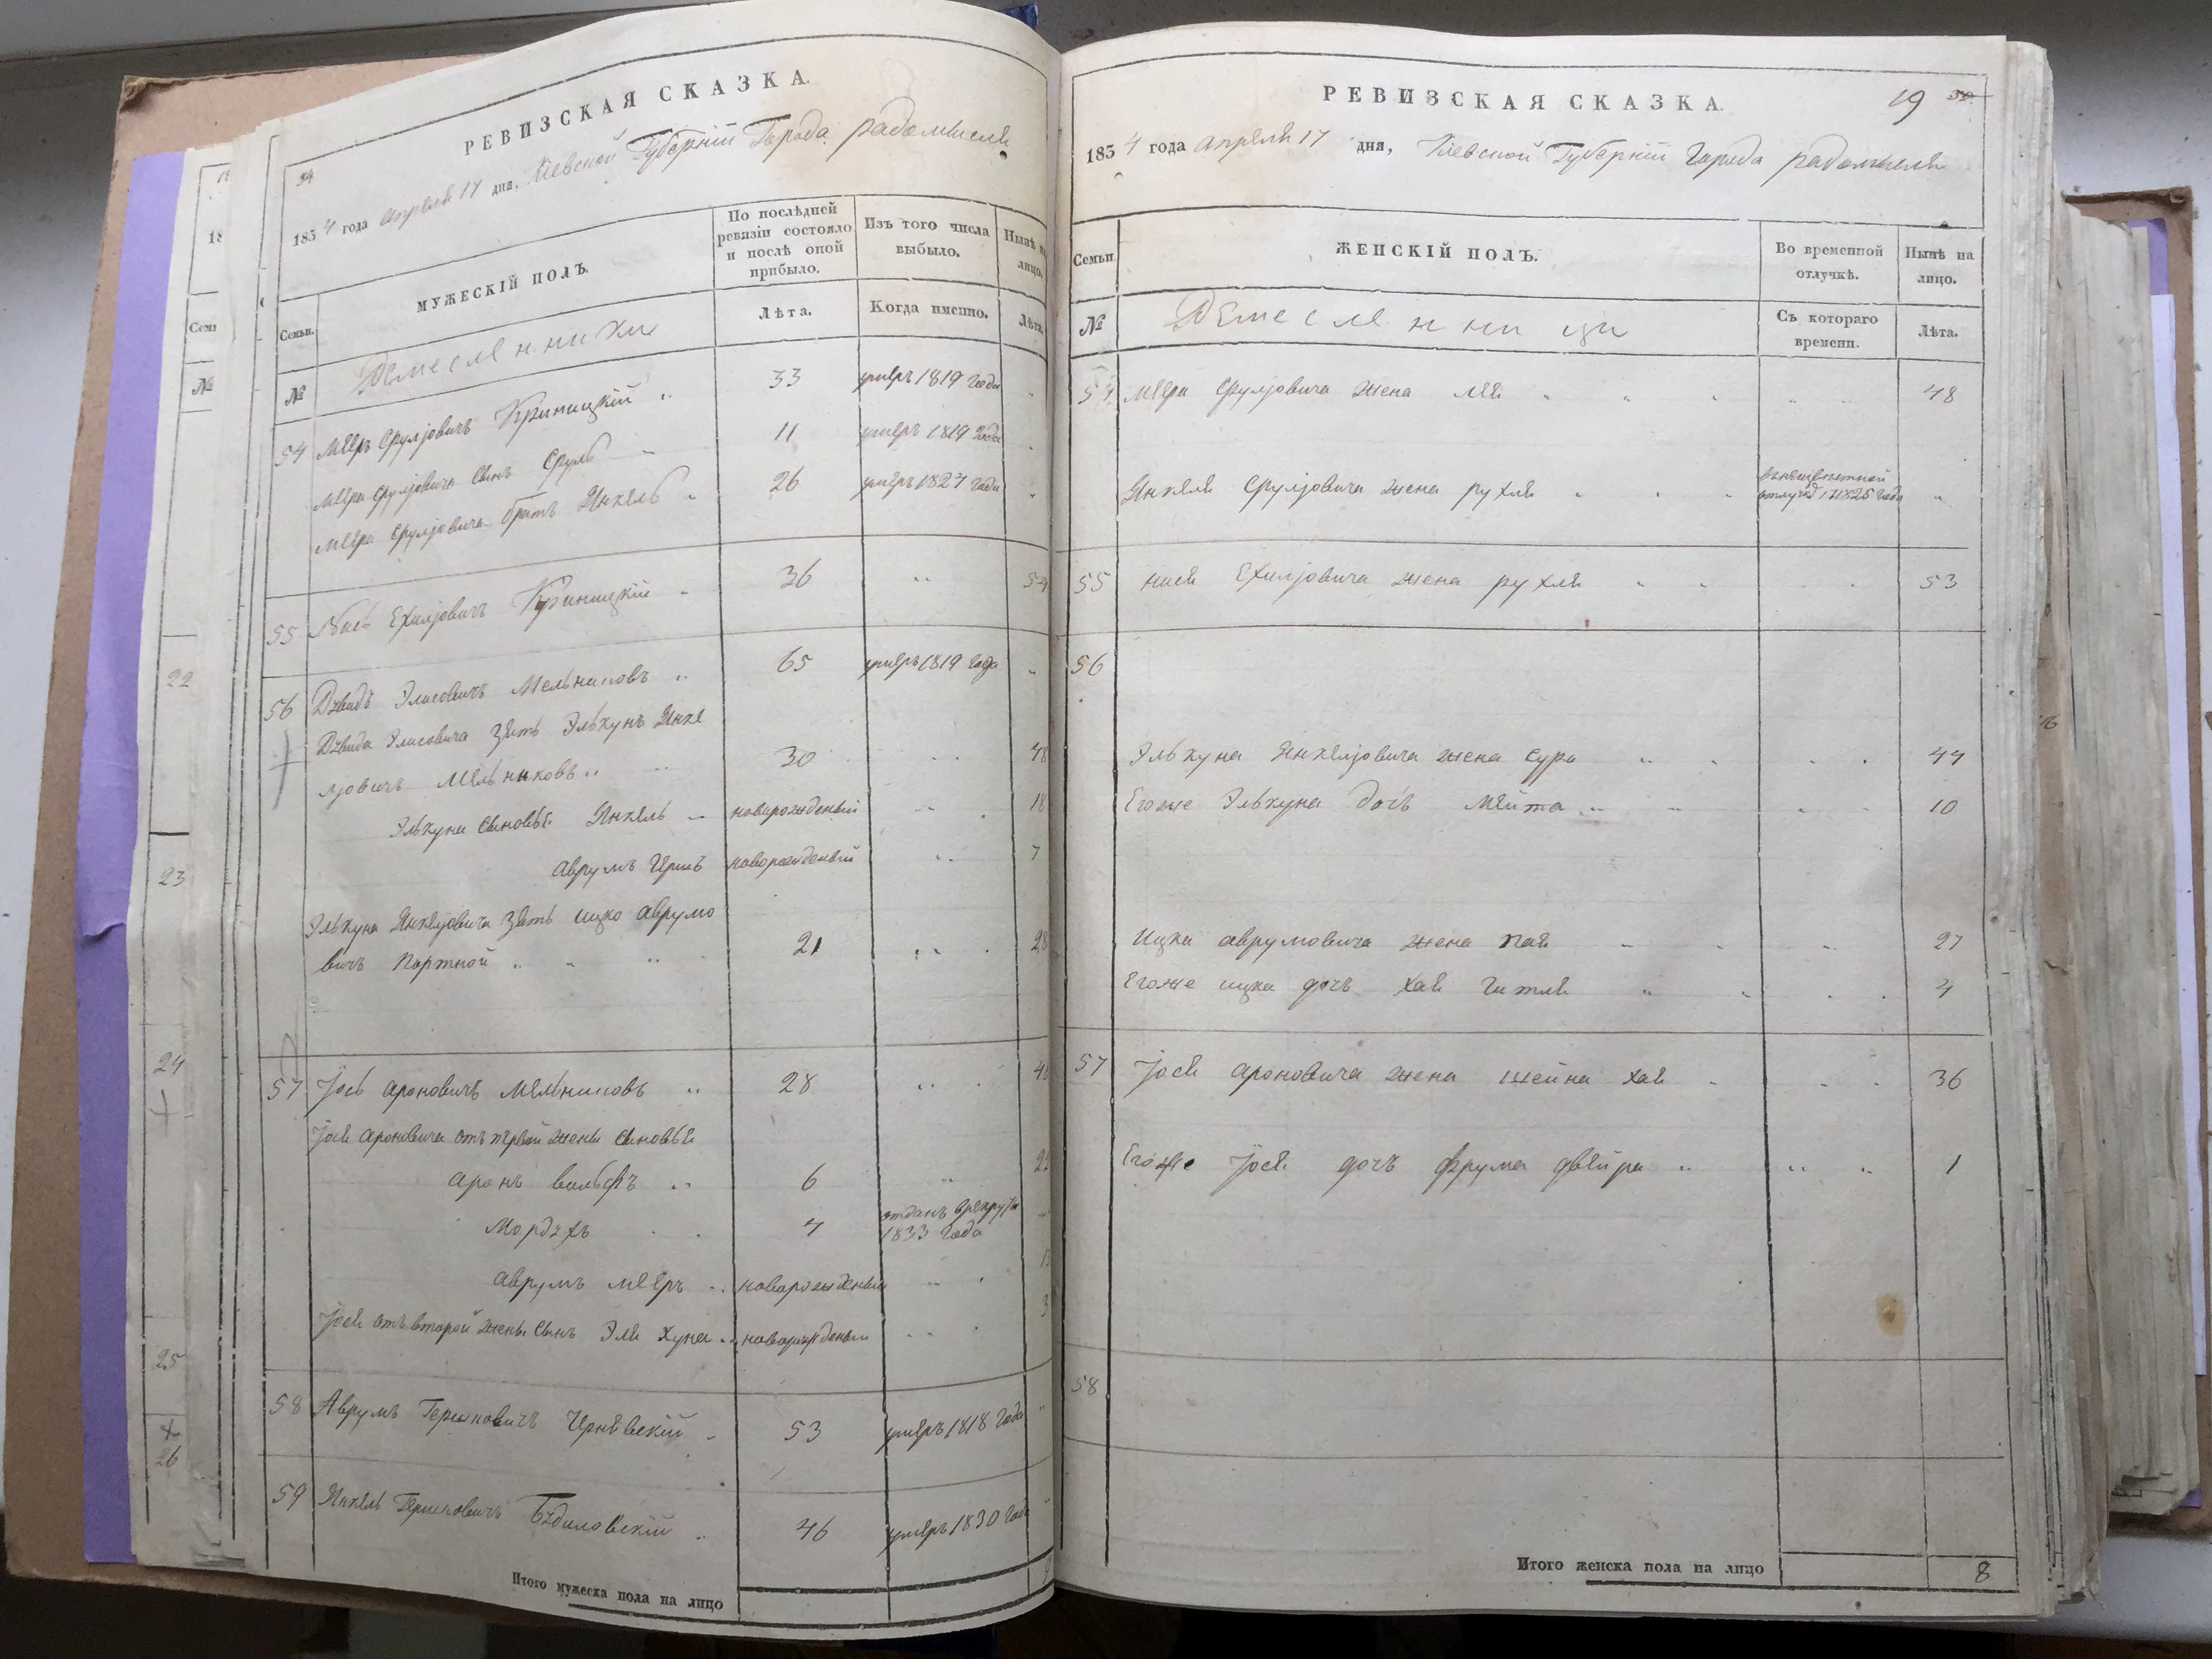 РЕВИЗСКАЯ СКАЗКА.
34
183 4 года Апреля 17 дня, Кіевской Губерніи Города радомысля
Семьи.
МУЖЕСКІЙ ПОЛЪ.
По послѣдней ревизіи состояло и послѣ оной прибыло.
Изъ того числа выбыло.
Нынѣ на лицо.
№
Ремесленники
Лѣта.
Когда именно.
Лѣта.
54 Меер Срулјовичъ Криницкій 33 умеръ 1819 года
Меера Срулјовича сынъ Сруль 11 умеръ 1819 года
Меера Срулјовича братъ Янкель 26 умеръ 1827 года
55 Нисъ Ехилјовичъ Криницкій 36 54
56 Дзвидъ Элисовичъ Мельниковъ 65 умеръ 1819 года
Дзвида Элисовича Зять Элькунъ Янке
лјовичъ Мельниковъ 30 48
Элькуна сыновья Янкель новорожденый 18
аврумъ Иршъ новорожденый 7
Элькуна Янкелјовича Зять ицко аврумо
вичъ Портной 21 28
57 Јось ароновичъ Мельниковъ 28
Јося ароновича отъ первой жены сыновья
аронъ вольфъ 6
Мордзхъ 4 отданъ врекруты
1833 года
аврумъ мееръ новорожденый
Јося отъ второй жены сынъ Эля Хуна новорожденый 3
58 Аврумъ Гершковичъ Чернявскій 53 умеръ 1818 года
59 Янкель Гершковичъ Бздиловскій 46 умеръ 1830 года
Итого мужеска пола на лицо
РЕВИЗСКАЯ СКАЗКА.
19
183 4 года апреля 17 дня, Кіевской Губерніи Города радомысля
Семьи.
ЖЕНСКІЙ ПОЛЪ.
Во временной отлучкѣ.
Нынѣ на лицо.
№
Ремесленници
Съ котораго времени.
Лѣта.
54 Меера Срулјовича жена Лея 48
Янкеля Срулјовича жена рухля отлучке 1825 года
55 нися Ехилјовича жена рухля 53
56
Элькуна Янкелјовича жена сура 44
Егоже Элькуна дочь Мейта 10
Ицка аврумовича жена пая 27
Егоже ицка дочъ хая Гитля 4
57 Јося ароновича жена шейна хая 36
Егоже Јося дочъ фрума двейра 1
58
Итого женска пола на лицо 8
22
23
24
25
26